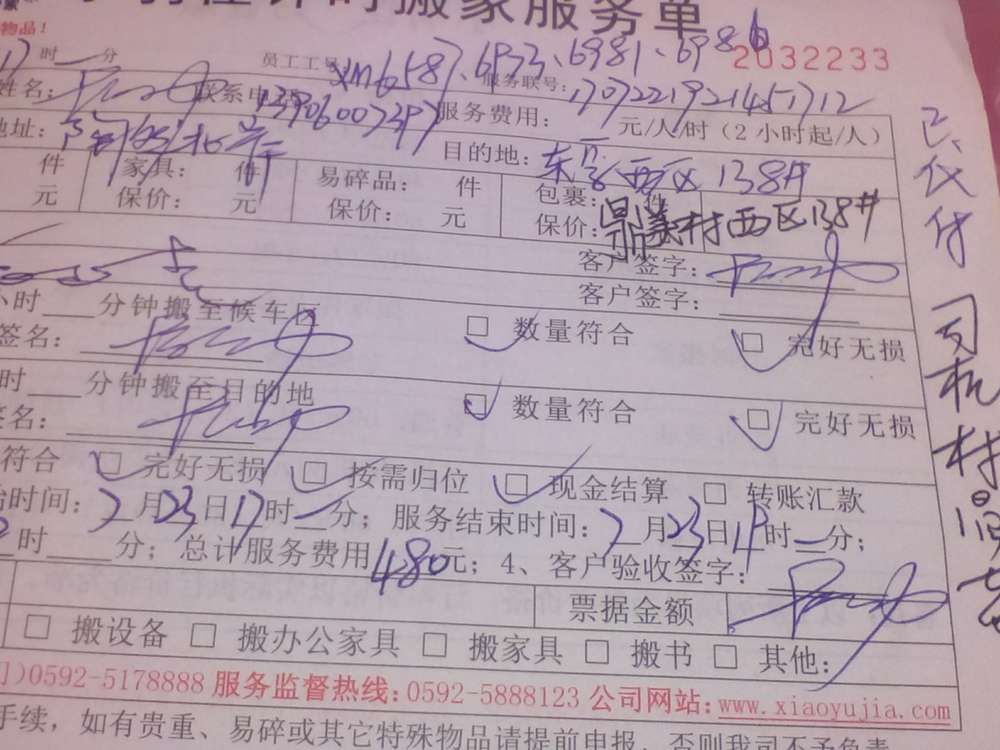 搬家服务单
物品！
2032233
17时一分 员工工号: xm6587、6933、6981、6986
姓名: 联系电 服务联号: 1707221921451712
地址: 服务费用: 元/人/时（2小时起/人）
目的地: 东 西区138#
件 家具: 件 易碎品: 件 包裹: 件
元 保价: 元 保价: 元 保价: 村西区138#
客户签字:
客户签字:
小时 分钟搬至候车区 数量符合 完好无损
签名:
时 分钟搬至目的地 数量符合 完好无损
签名:
符合 完好无损 按需归位 现金结算 转账汇款
始时间: 2月23日17时一分; 服务结束时间: 2月23日19时一分;
时 分; 总计服务费用480元; 4、客户验收签字:
票据金额
搬设备 搬办公家具 搬家具 搬书 其他:
)0592-5178888 服务监督热线:0592-5888123 公司网站:www.xiaoyujia.com
手续，如有贵重、易碎或其它特殊物品请提前申报，否则我司不予负责
已代付 司机